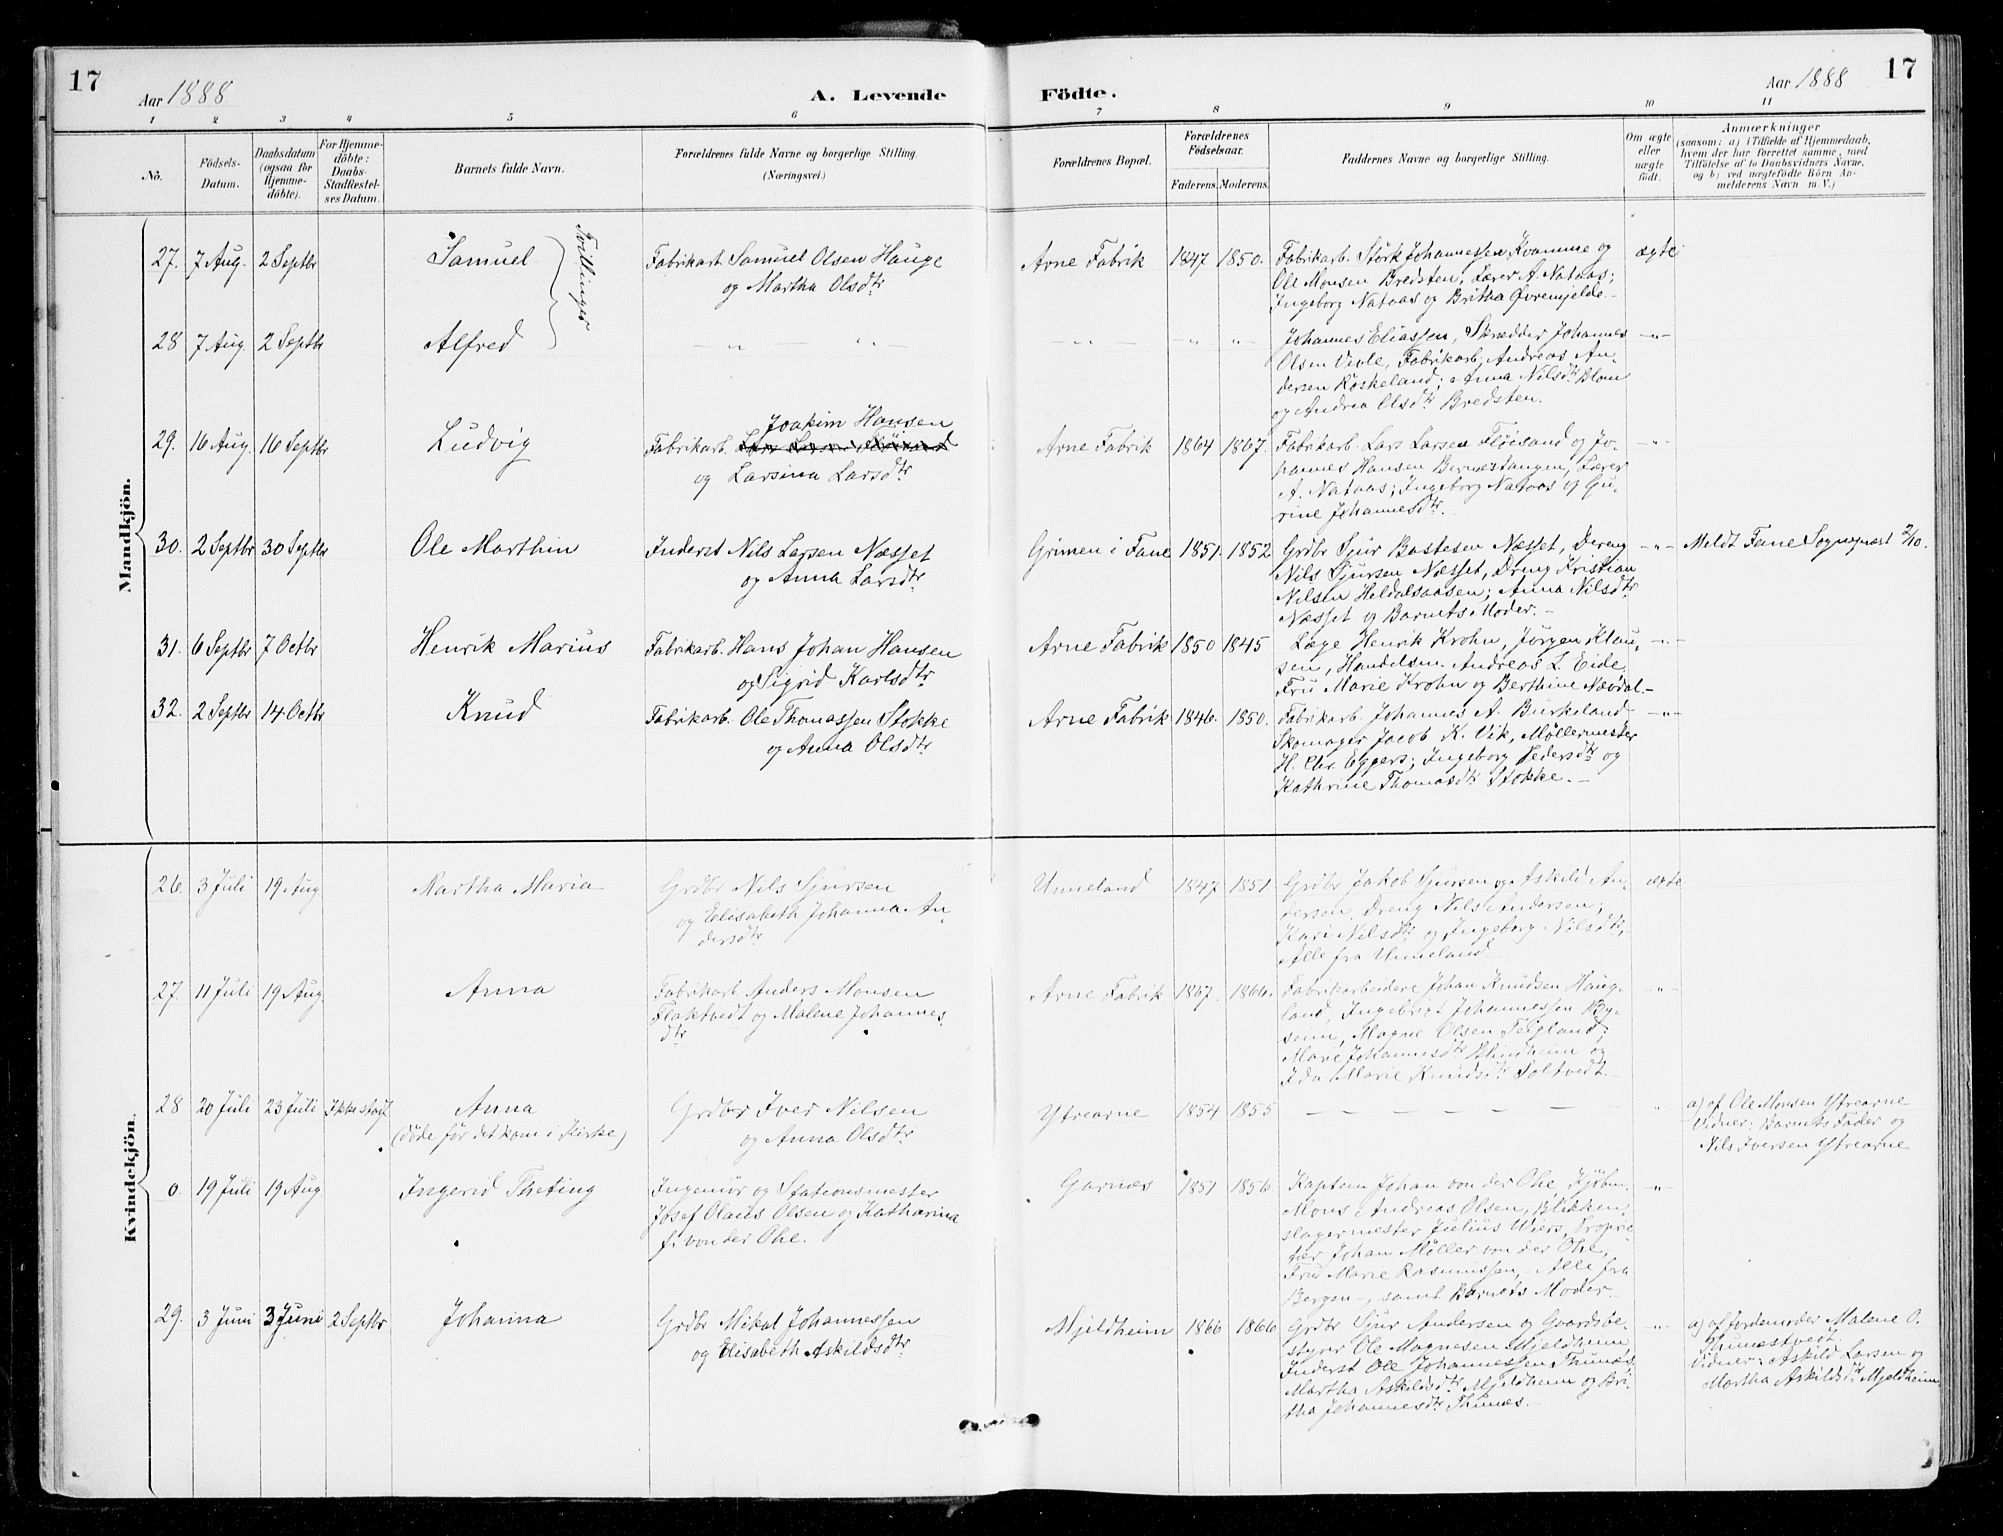 17
Aar 1888
A. Levende Födte.
Aar 1888
17
1 2 3 4 5 6 7 8 9 10 11
No.
Födsels-Datum.
Daabsdatum (ogsaa for Hjemmedöbte).
For Hjemmedöbte: Daabs-Stadfæstelses Datum.
Barnets fulde Navn.
Forældrenes fulde Navne og borgerlige Stilling. (Næringsvei.)
Forældrenes Bopæl.
Forældrenes Födselsaar.
Faderens. Moderens.
Faddernes Navne og borgerlige Stilling.
Om ægte eller uægte födt.
Anmærkninger
(saasom: a) i Tilfælde af Hjemmedaab, hvem der har forrettet samme, med Tilföielse af to Daabsvidners Navne, og b) ved uægtefödte Börn Anmelderens Navn m. V.)
Mandkjön.
27. 7 Aug. 2 Septbr Samuel Tvillinger Fabrikarb. Samuel Olsen Hauge Arne Fabrik 1847 1850. Fabrikarb. Störk Johannessen Kvamme og ægte
og Martha Olsdtr Ole Monsen Bredsten, Lærer A. Nataas;
Ingeborg Nataas og Britha Øvremjelde.
28 7 Aug. 2 Septbr Alfred – „ – „ – – „ – „ „ Johannes Eliassen, Skrædder Johannes – „ –
Olsen Vevle, Fabrikarb. Andreas An-
dersen Röskeland; Anna Nilsdtr Blom
og Andrea Olsdtr Bredsten.
Joakim Hansen
29. 16 Aug. 16 Septbr Ludvig Fabrikarb. Arne Fabrik 1864 1867. Fabrikarb. Lars Larsen Fløisand og Jo- – „ –
og Larsina Larsdtr hannes Hansen Bernæstangen, Lærer
A. Nataas; Ingeborg Nataas og Gu-
rine Johannesdtr.
30. 2 Septbr 30 Septbr Ole Marthin Inderst Nils Larsen Næsset Grimen i Fane 1851. 1852 Grdbr Sjur Bastesen Næsset, Dreng – „ – Meldt Fane Sognepræst 2/10.
og Anna Larsdtr Nils Sjursen Næsset, Dreng Kristian
Nilsen Heldalsaasen; Anna Nilsdtr
Næsset og Barnets Moder. –
31. 6 Septbr 7 Octbr Henrik Marius Fabrikarb. Hans Johan Hansen Arne Fabrik 1850 1845 Læge Henrik Krohn, Jörgen Klau- – „ –
og Sigrid Karlsdtr sen, Handelsm. Andreas L. Eide
Fru Marie Krohn og Berthine Nævdal.
32. 2 Septbr 14 Octbr Knud Fabrikarb. Ole Thomassen Stokke Arne Fabrik 1846. 1850. Fabrikarb. Johannes A. Burkeland – „ –
og Anna Olsdtr Skomager Jacob K. Vik, Møllermester
H. Chr. Eggers; Ingeborg Pedersdtr og
Kathrine Thomasdtr Stokke. –
Kvindekjön.
26. 3 Juli 19 Aug Martha Maria Grdbr Nils Sjursen Unneland 1847 1851 Grdbr Jakob Sjursen og Askild An- ægte
og Elisabeth Johanna An- dersen, Dreng Nils Andersen;
dersdtr Kari Nilsdtr og Ingeborg Nilsdtr,
Alle fra Unneland.
27. 11 Juli 19 Aug Anna Fabrikarb Anders Monsen Arne Fabrik 1867. 1866. Fabrikarbeidere Johan Knudsen Haug- – „ –
Flaktvedt og Malene Johannes- land, Ingebrigt Johannessen
dtr Magne Olsen Teigland;
Marie Johannesdtr Blindheim og
Ida Marie Knudsdtr Soltvedt. –
28 20 Juli 23 Juli Ikke stadf Anna Grdbr Iver Nilsen Ytrearne 1854 1855 – – – – – – „ a) af Ole Monsen Ytrearne
(døde før det kom i Kirke) og Anna Olsdtr Vidner: Barnets Fader og
Nils Iversen Ytrearne
0. 19 Juli 19 Aug Ingerid Theting Ingeniør og Stationsmester Garnæs 1851 1856. Kaptein Johan von der Ohe, Kjøbm. „
Josef Olaus Olsen og Katharina Mons Andreas Olsen, Blikken-
f. von der Ohe. slagermester Julius Wiers, Proprie-
tær Johan Møller von der Ohe,
Fru Marie Rasmussen, – Alle fra
Bergen –, samt Barnets Moder.
29. 3 Juni 3 Juni 2 Septbr Johanna Grdbr Mikal Johannessen Mjeldheim 1866 1866 Grdbr Sjur Andersen og Gaardsbe- „ a) af Jordemoder Malene O.
og Elisabeth Askildsdtr styrer Ole Magnesen Mjeldheim, Thunestvedt
Inderst Ole Johannessen Thunæs. Vidner: Askild Larsen og
Martha Askildsdtr Mjeldheim og Bri- Martha Askildsdtr Mjeldheim.
tha Johannesdtr Thunæs. –